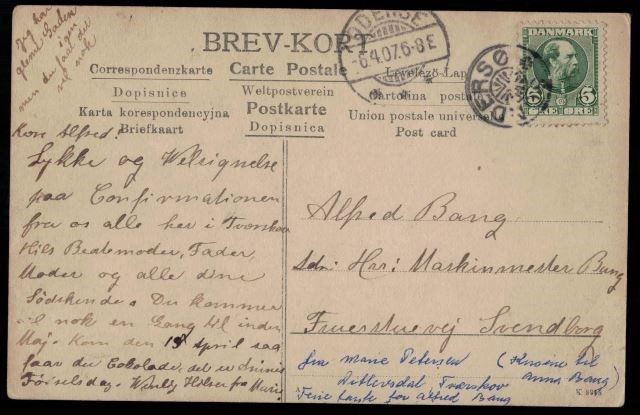 Jeg har
glemt Gaden
igen
men du faar det
vel nok
BREV-KORT
Correspondenzkarte Carte Postale Levelező-Lap
Dopisnice Weltpostverein Cartolina postale
Karta korespondencyjna Postkarte Union postale universelle
Briefkaart Dopisnica Post card
ODENSE
6.4.07.6-8E
DANMARK
5 ØRE 5 ØRE
Kære Alfred!
Lykke og Velsignelse
paa Confirmationen
fra os alle her i Tverskov
Hils Bedstemoder, Fader,
Moder og alle dine
Sødskende. Du kommer
vel nok en Gang til inden
Maj. Kom den 18 April saa
faar du Cokolade, det er
Føiselsdag. Venlig Hilsen fra Marie
Alfred Bang
Adr: Hrr: Maskinmester Bang
Fruerstuevej Svendborg
fra Marie Petersen (Kusine til
Dittersdal Tverskov Anna Bang)
Ferie tante for Alfred Bang